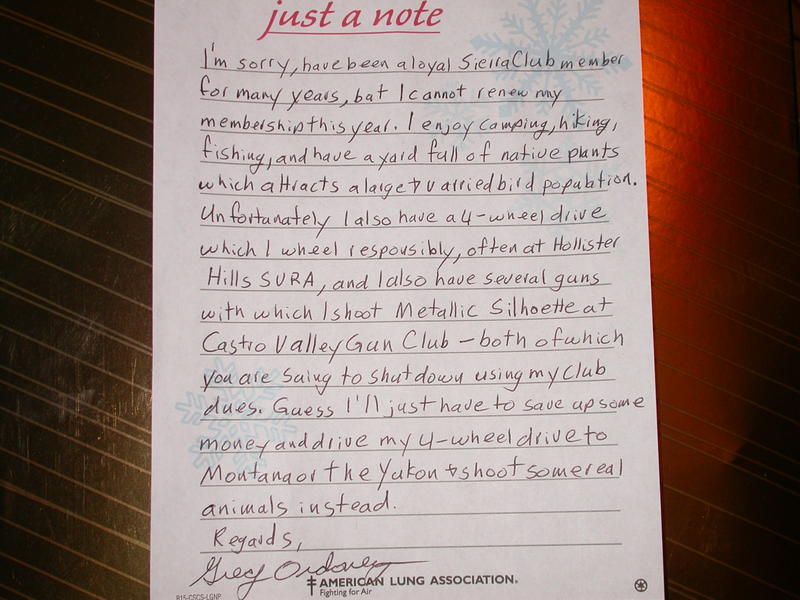 just a note
I'm sorry, have been a loyal Sierra Club member
for many years, but I cannot renew my
membership this year. I enjoy camping, hiking,
fishing, and have a yard full of native plants
which attracts a large & varried bird population.
Unfortunately I also have a 4-wheel drive
which I wheel responsibly, often at Hollister
Hills SURA, and I also have several guns
with which I shoot Metallic Silhoette at
Castro Valley Gun Club - both of which
you are suing to shut down using my club
dues. Guess I'll just have to save up some
money and drive my 4-wheel drive to
Montana or the Yukon & shoot some real
animals instead.
Regards,
Greg Ordonez
AMERICAN LUNG ASSOCIATION®
Fighting for Air
R15-CSCS-LGNP